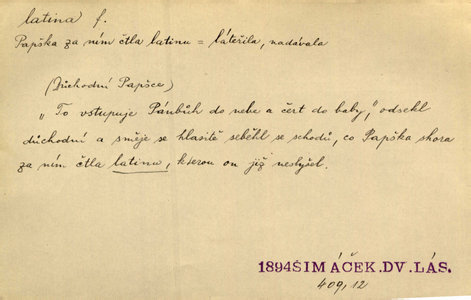 latina f.
Papška za ním čtla latinu = láteřila, nadávala
(Důchodní Papšce)
„To vstupuje Pánbůh do nebe a čert do baby," odsekl
důchodní a směje se hlasitě seběhl se schodů, co Papška shora
za ním čtla latinu, kterou on již neslyšel.
1894 ŠIMÁČEK. DV. LÁS.
409, 12